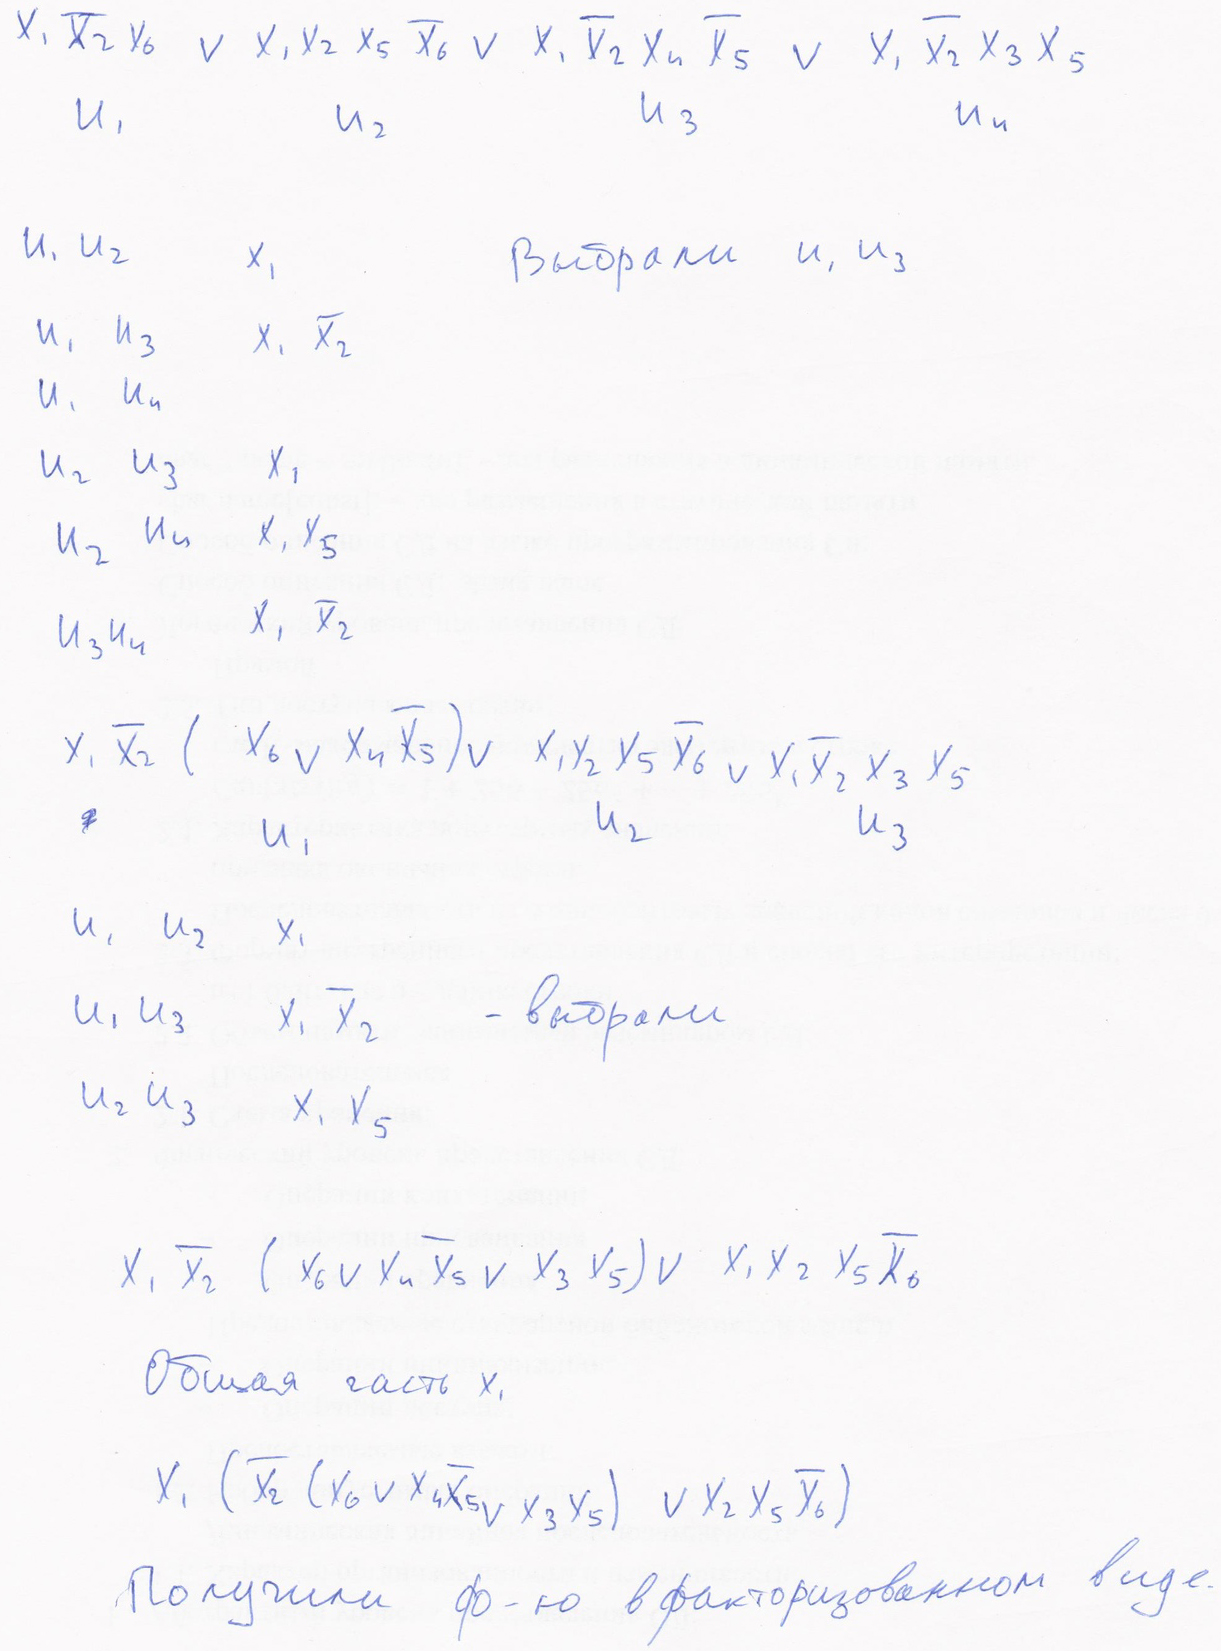 x₁ x̅₂ x₆ ∨ x₁ x₂ x₅ x̅₆ ∨ x₁ x̅₂ x₄ x̅₅ ∨ x₁ x̅₂ x₃ x₅
u₁ u₂ u₃ u₄
u₁ u₂ x₁ Выбрали u₁ u₃
u₁ u₃ x₁ x̅₂
u₁ u₄
u₂ u₃ x₁
u₂ u₄ x₁ x₅
u₃ u₄ x₁ x̅₂
x₁ x̅₂ ( x₆ ∨ x₄ x̅₅ ) ∨ x₁ x₂ x₅ x̅₆ ∨ x₁ x̅₂ x₃ x₅
u₁ u₂ u₃
u₁ u₂ x₁
u₁ u₃ x₁ x̅₂ - выбрали
u₂ u₃ x₁ x₅
x₁ x̅₂ ( x₆ ∨ x₄ x̅₅ ∨ x₃ x₅ ) ∨ x₁ x₂ x₅ x̅₆
Общая часть x₁
x₁ ( x̅₂ ( x₆ ∨ x₄ x̅₅ ∨ x₃ x₅ ) ∨ x₂ x₅ x̅₆ )
Получили ф-ю в факторизованном виде.